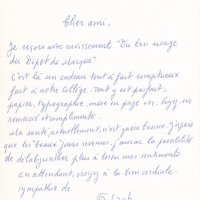 Cher ami.
Je reçois avec ravissement "Du bon usage
du Dépôt de Marque"
C'est là un cadeau tout à fait somptueux
fait à notre collège. Tout y est parfait.
papier, typographie, mise en page etc. Soyez-en
remercié et complimenté.
Ma santé, actuellement, n'est guère bonne. J'espère
que les beaux jours revenus, j'aurai la possibilité
de plus à loisir mes sentiments.
En attendant, croyez à la bien cordiale
sympathie de